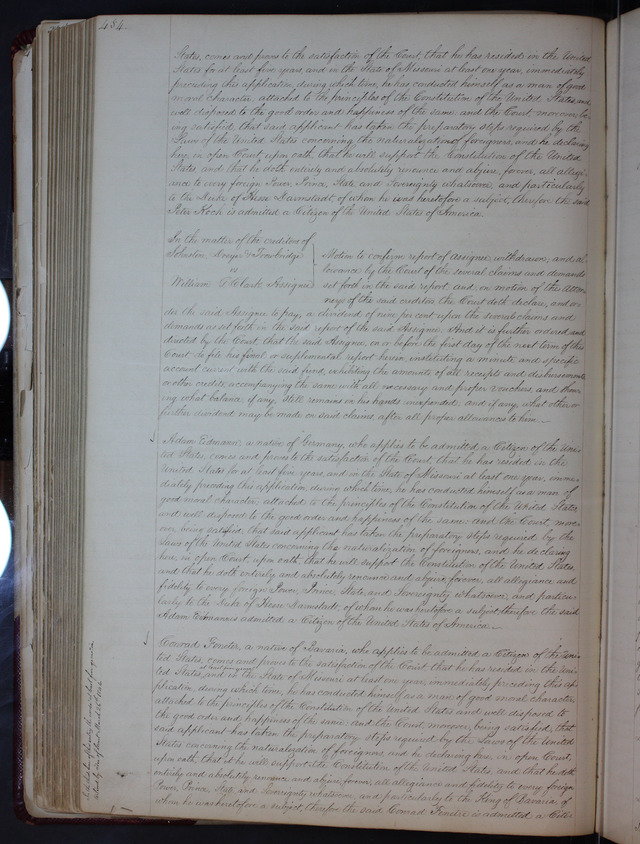 454.
States, comes and proves to the satisfaction of the Court, that he has resided in the United
States for at least five years, and in the State of Missouri at least one year, immediately
preceding this application, during which time, he has conducted himself as a man of good
moral character, attached to the principles of the Constitution of the United States, and
well disposed to the good order and happiness of the same: and the Court, moreover be-
ing satisfied, that said applicant has taken the preparatory steps required by the
Laws of the United States concerning the naturalization of foreigners, and he declaring
here, in open Court, upon oath, that he will support the Constitution of the United
States, and that he doth entirely and absolutely renounce and abjure, forever, all allegi-
ance to every foreign Power, Prince, State and Sovereignty whatsoever, and particularly
to the Duke of Hesse Darmstadt, of whom he was heretofore a subject, therefore the said
Peter Koch is admitted a Citizen of the United States of America.
In the matter of the creditors of
Johnston, & Trowbridge
vs
William Clark Assignee
Motion to confirm report of Assignee, withdrawn; and al-
lowance by the Court of the several claims and demands
set forth in the said report, and on motion of the Attor-
neys of the said creditors the Court doth declare, and or-
der the said Assignee to pay, a dividend of nine per cent upon the several claims and
demands as set forth in the said report of the said Assignee. And it is further ordered and
directed by the Court, that the said Assignee, on or before the first day of the next term of this
Court do file his final or suplimental report herein instituting a minute and specific
account current with the said fund, exhibiting the amounts of all receipts and disbursements
or other credits, accompanying the same with all necessary and proper vouchers, and show-
ing what balance if any, still remains in his hands unexpended; and if any, what other or
further dividend may be made on said claims, after all proper allowances to him.
Adam , a native of Germany, who applies to be admitted a Citizen of the Uni-
ted States, comes and proves to the satisfaction of the Court, that he has resided in the
United States for at least five years, and in the State of Missouri at least one year, imme-
diately preceding this application, during which time, he has conducted himself as a man of
good moral character, attached to the principles of the Constitution of the United States,
and well disposed to the good order and happiness of the same: and the Court, more-
over, being satisfied, that said applicant has taken the preparatory steps required by the
Laws of the United States concerning the naturalization of foreigners, and he declaring
here, in open Court, upon oath, that he will support the Constitution of the United States,
and that he doth entirely and absolutely renounce and abjure, forever, all allegiance and
fidelity to every foreign Power, Prince, State, and Sovereignty whatsoever, and particu-
larly to the Duke of Hesse Darmstadt, of whom he was heretofore a subject, therefore the said
Adam is admitted a Citizen of the United States of America.
Conrad Fenster, a native of Bavaria, who applies to be admitted a Citizen of the Uni-
ted States, comes and proves to the satisfaction of the Court that he has resided in the Uni-
ted States, at least five years and in the State of Missouri at least one year, immediately preceding this ap-
plication, during which time, he has conducted himself as a man of good moral character,
attached to the principles of the Constitution of the United States and well disposed to
the good order and happiness of the same: and the Court, moreover, being satisfied, that
said applicant has taken the preparatory steps required by the Laws of the United
States concerning the naturalization of foreigners, and he declaring here, in open Court,
upon oath, that he will support the Constitution of the United States, and that he doth
entirely and absolutely renounce and abjure, forever, all allegiance and fidelity to every foreign
Power, Prince, State and Sovereignty whatsoever, and particularly to the King of Bavaria, of
whom he was heretofore a subject, therefore the said Conrad Fenster is admitted a Citi-